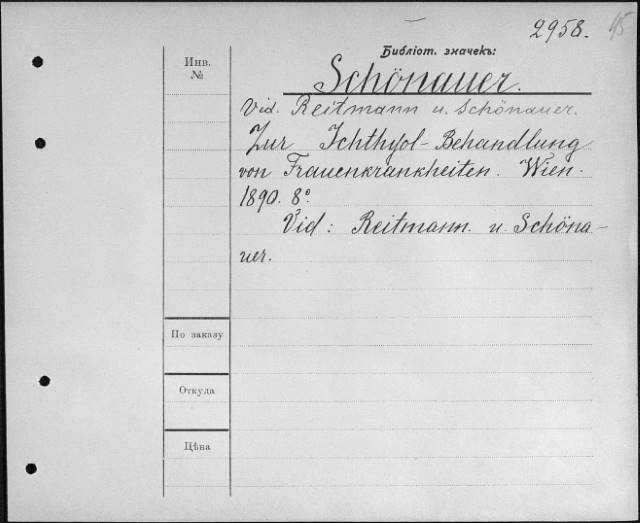 2958. 45
Библіот. значекъ:
Инв.
№
Schönauer.
Vid. Reitmann u. Schönauer.
Zur Ichthyol-Behandlung
von Frauenkrankheiten. Wien.
1890. 8°.
Vid: Reitmann. u. Schöna-
uer.
По заказу
Откуда
Цѣна